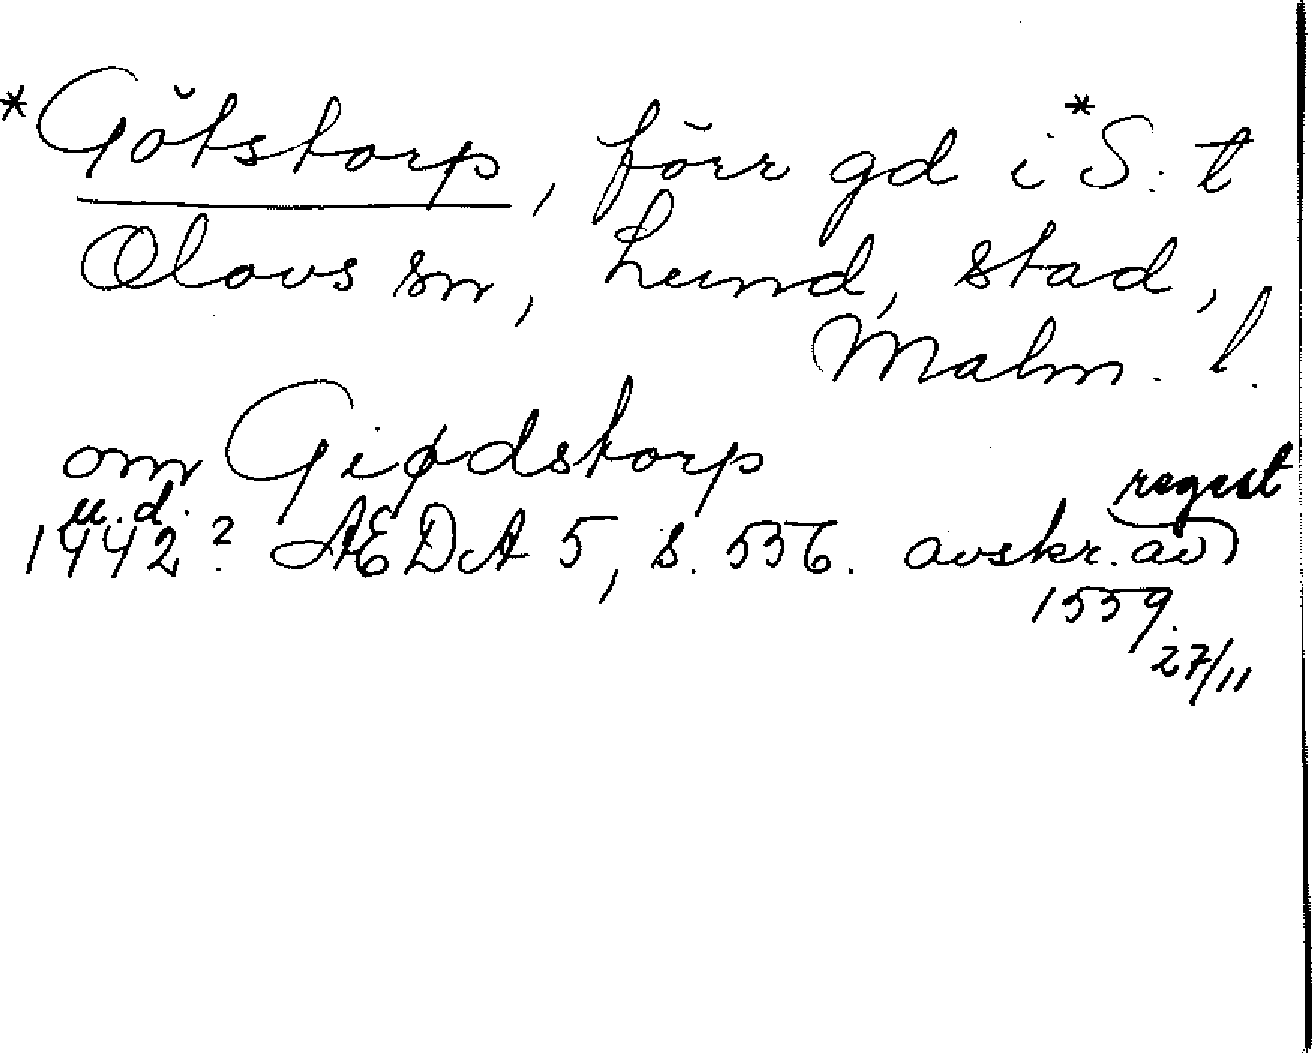 *Götstorp, förr gd i *S:t
Olovs sn, Lund, stad,
Malm. l.
om Giødstorp
u.d.
1442? ÆDA 5, s. 536. avskr. av regest
1559.
27/11